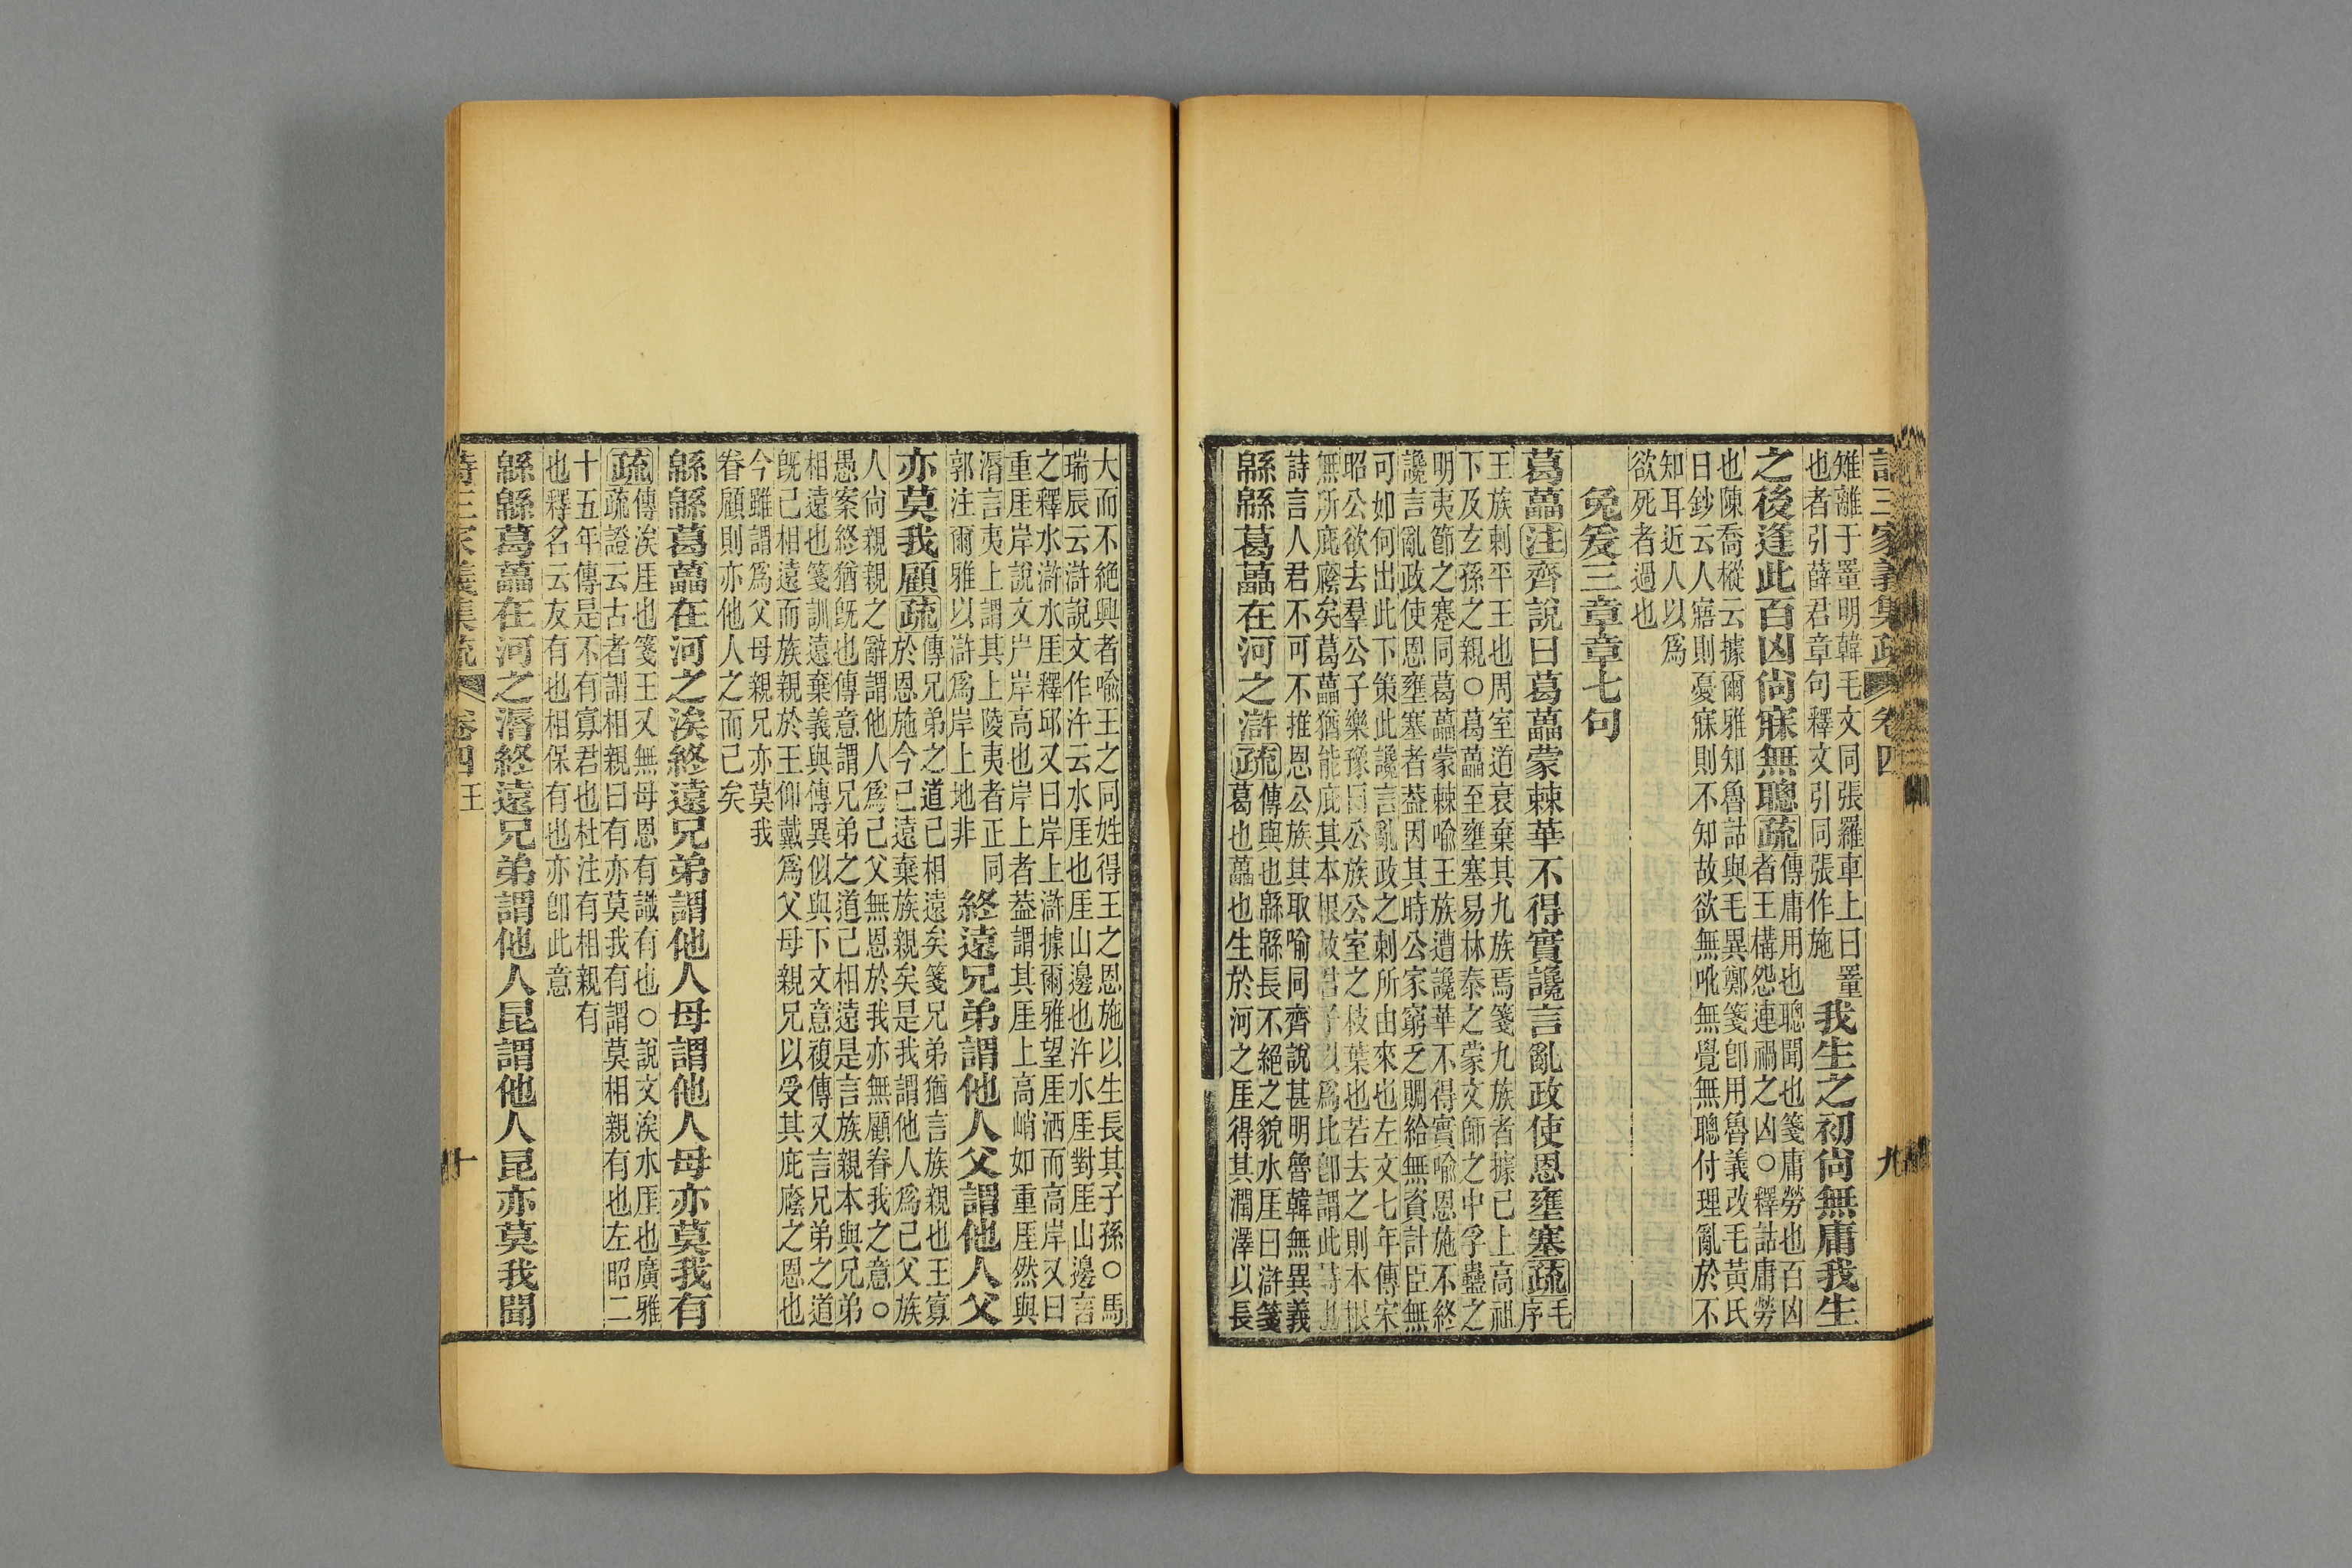 詩三家義集疏 卷四 九
雉離于罿明韓毛文同張羅車上曰罿
也者引薛君章句釋文引同張作施
我生之初尚無庸我生
之後逢此百凶尚寐無聰疏
傳庸用也聰聞也箋庸勞也百凶
者王構怨連禍之凶○釋詁庸勞
也陳喬樅云據爾雅知魯詁與毛異鄭箋卽用魯義改毛黃氏
日鈔云人寤則憂寐則不知故欲無吪無覺無聰付理亂於不
知耳近人以爲
欲死者過也
兔爰三章章七句
葛藟注齊說曰葛藟蒙棘華不得實讒言亂政使恩壅塞疏
毛
序
王族刺平王也周室道衰棄其九族焉箋九族者據己上高祖
下及玄孫之親○葛藟至壅塞易林泰之蒙文師之中孚蠱之
明夷節之蹇同葛藟蒙棘喻王族遭讒華不得實喻恩施不終
讒言亂政使恩壅塞者葢因其時公家窮乏賙給無資計臣無
可如何出此下策此讒言亂政之刺所由來也左文七年傳宋
昭公欲去羣公子樂豫曰公族公室之枝葉也若去之則本根
無所庇廕矣葛藟猶能庇其本根故君子以爲比卽謂此詩也
詩言人君不可不推恩公族其取喻同齊說甚明魯韓無異義
緜緜葛藟在河之滸疏
傳興也緜緜長不絕之貌水厓曰滸箋
葛也藟也生於河之厓得其潤澤以長
大而不絕興者喻王之同姓得王之恩施以生長其子孫○馬
瑞辰云滸說文作汻云水厓也厓山邊也汻水厓對厓山邊言
之釋水滸水厓釋邱又曰岸上滸據爾雅望厓洒而高岸又曰
重厓岸說文岸高也岸上者葢謂其厓上高峭如重厓然與
漘言夷上謂其上陵夷者正同
郭注爾雅以滸爲岸上地非
終遠兄弟謂他人父謂他人父
亦莫我顧疏
傳兄弟之道已相遠矣箋兄弟猶言族親也王寡
於恩施今已遠棄族親矣是我謂他人爲己父族
人尚親親之辭謂他人爲己父無恩於我亦無顧眷我之意○
愚案終猶旣也傳意謂兄弟之道已相遠是言族親本與兄弟
相遠也箋訓遠棄義與傳異似與下文意複傳又言兄弟之道
旣已相遠而族親於王仰戴爲父母親兄以受其庇廕之恩也
今雖謂爲父母親兄亦莫我
眷顧則亦他人之而已矣
緜緜葛藟在河之涘終遠兄弟謂他人母謂他人母亦莫我有
疏
傳涘厓也箋王又無母恩有識有也○說文涘水厓也廣雅
疏證云古者謂相親曰有亦莫我有謂莫相親有也左昭二
十五年傳是不有寡君也杜注有相親有
也釋名云友有也相保有也亦卽此意
緜緜葛藟在河之漘終遠兄弟謂他人昆謂他人昆亦莫我聞
詩三家義集疏 卷四 王 十